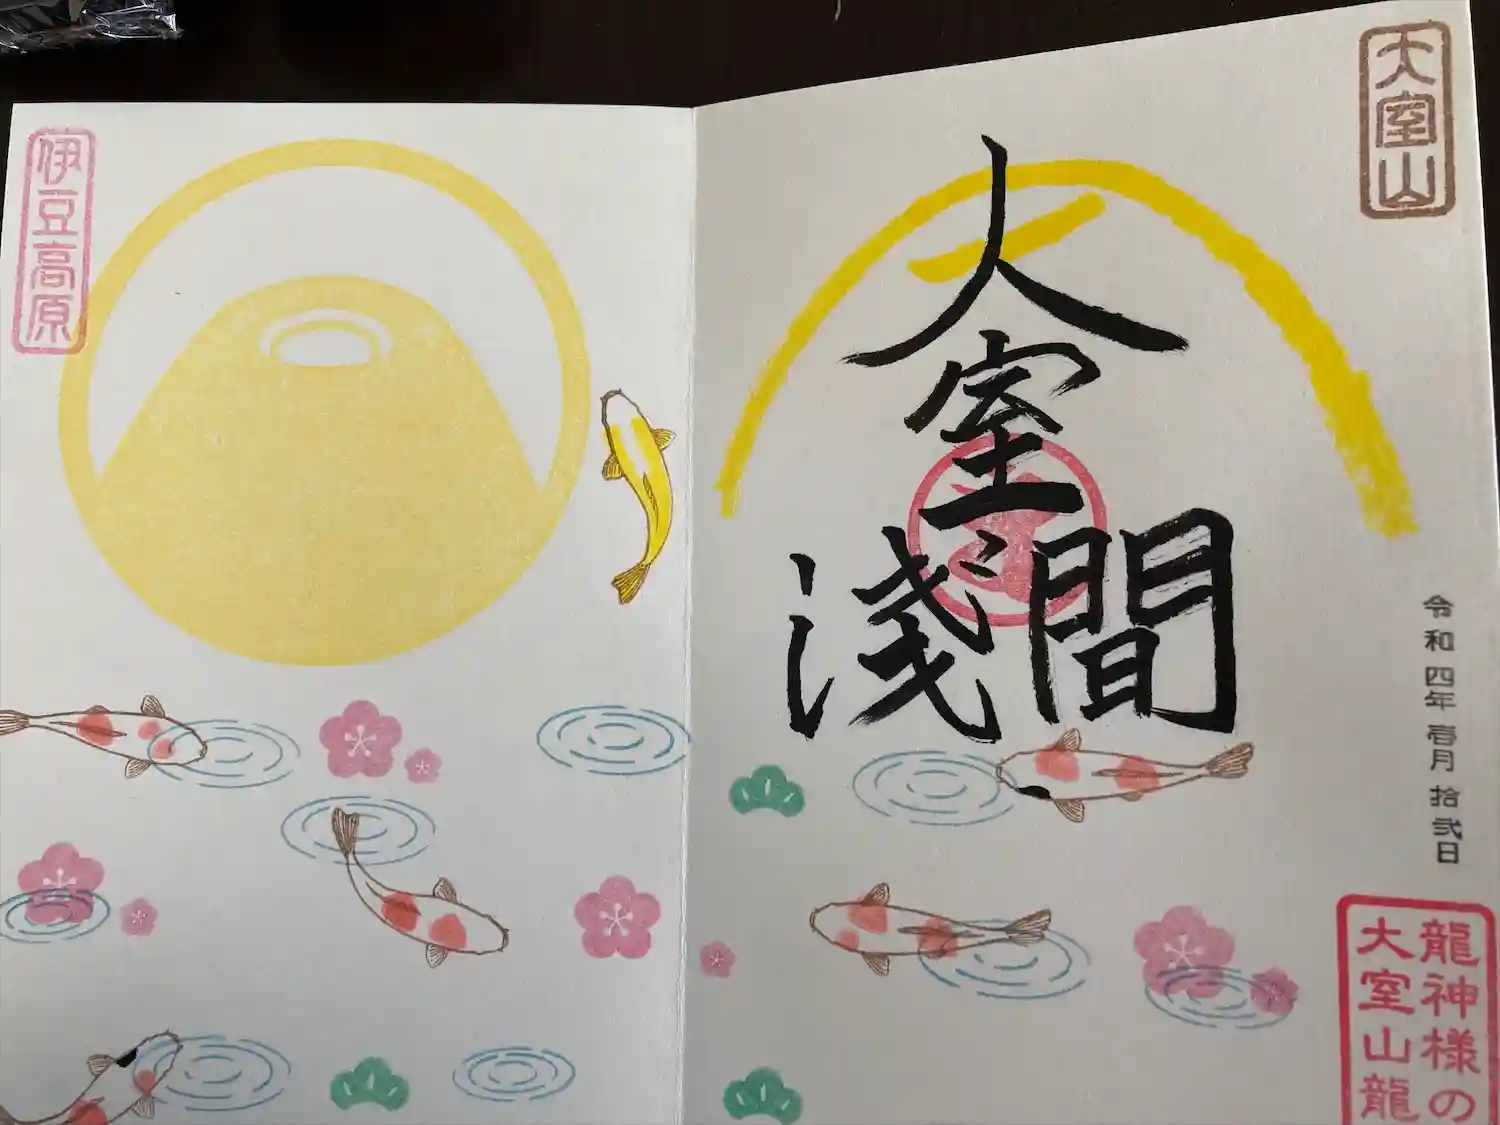 大室山
大室
浅間
令和四年壱月拾弐日
龍神様の
大室山龍
伊豆高原